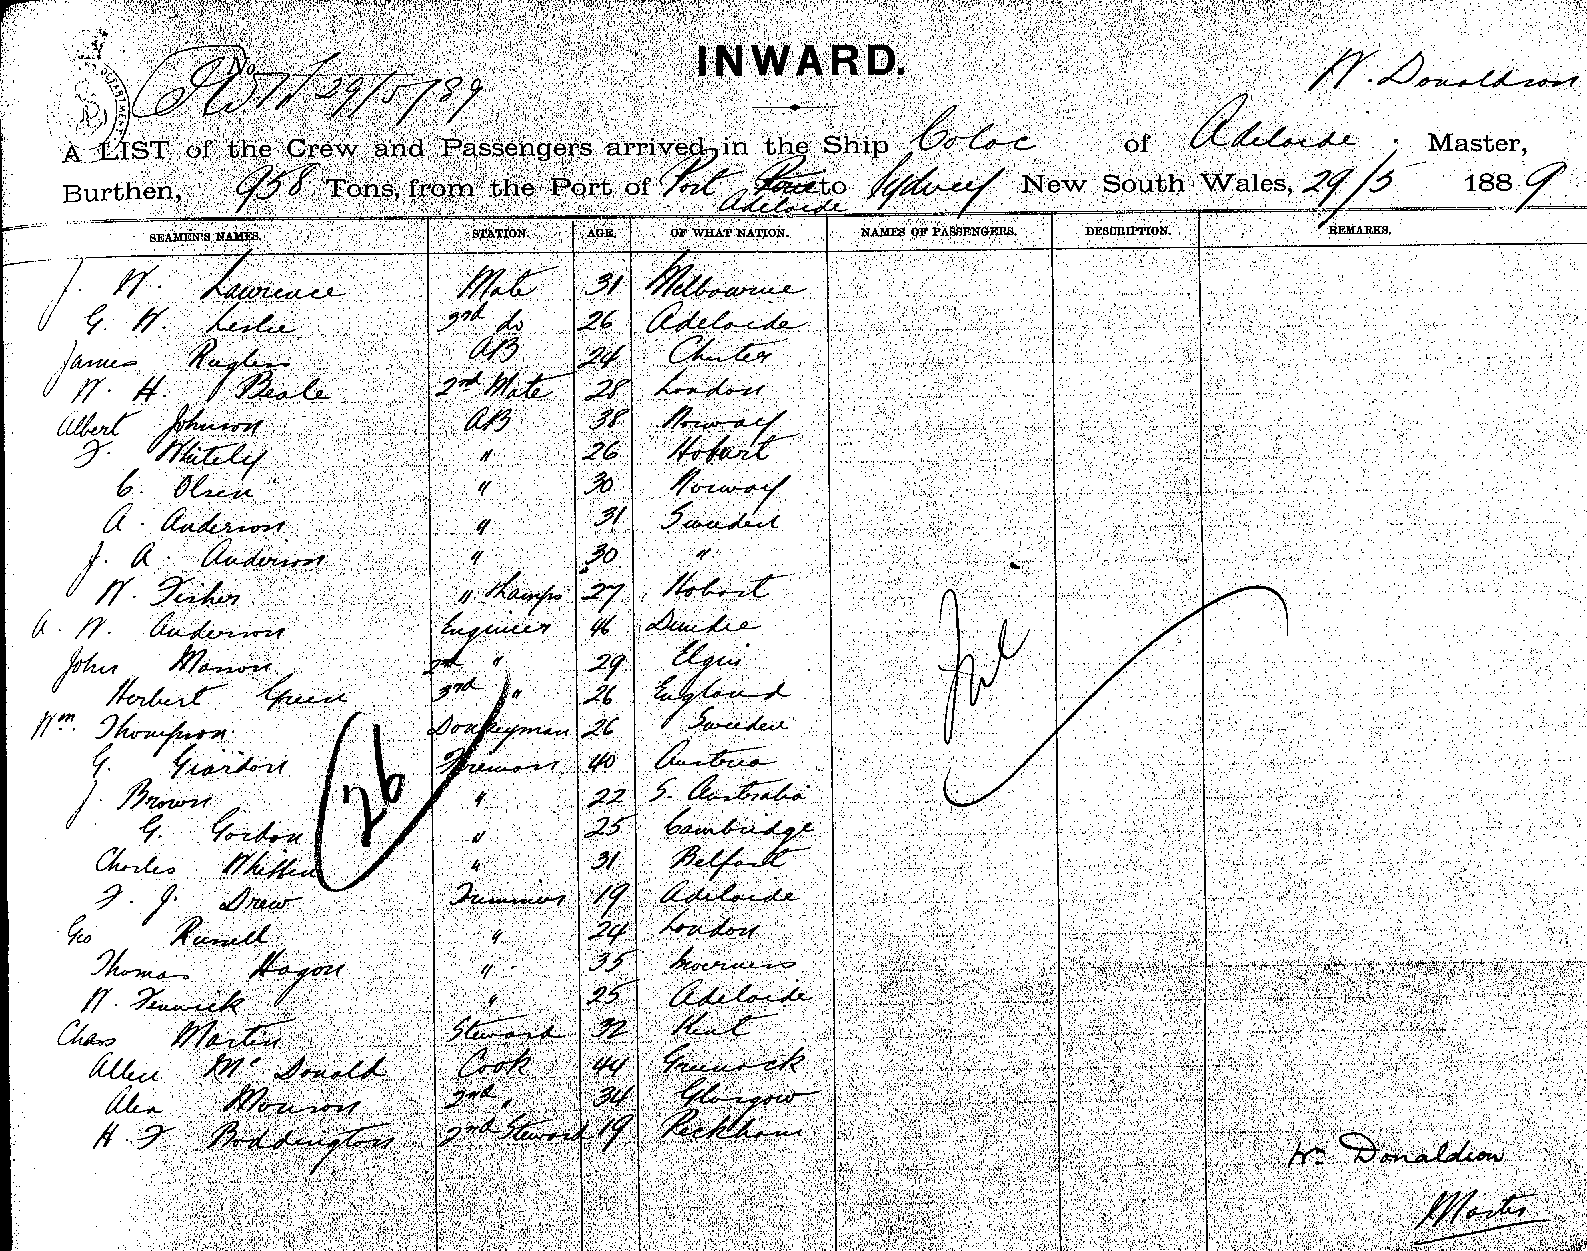 INWARD.
29/5/89
W. Donaldson
A LIST of the Crew and Passengers arrived in the Ship Colac of Adelaide. Master,
Burthen, 958 Tons, from the Port of Port Pirie Adelaide to Sydney New South Wales, 29/5 1889
SEAMEN'S NAMES. STATION. AGE. OF WHAT NATION. NAMES OF PASSENGERS. DESCRIPTION. REMARKS.
J. W. Lawrence Mate 31 Melbourne
G. W. Leslie 3rd do 26 Adelaide
James AB 24 Chester
W. H. Beale 2nd Mate 28 London
Albert Johnson AB 38 Norway
F. Whitely " 26 Hobart
C. Olsen " 30 Norway
A. Anderson " 31 Sweden
J. A. Anderson " 30 "
W. Fisher " Lamps 27 Hobart
A. W. Anderson Engineer 46 Dundee
John Manson 2nd " 29 Elgin
Herbert Green 3rd " 26 England
Wm. Thompson Donkeyman 26 Sweden
G. Fireman 40 Austria
J. Brown " 22 S. Australia
G. Gordon " 25 Cambridge
Charles " 31 Belfast
F. J. Drew Trimmer 19 Adelaide
Geo Russell " 24 London
Thomas Hagon " 35 Inverness
W. Fenwick " 25 Adelaide
Chas Martin Steward 32 Kent
Allen Mc Donald Cook 44 Greenock
Alex Monson 2nd " 34 Glasgow
H. F. Boddington 2nd Steward 19 Peckham
26
Nil
Wm Donaldson
Master